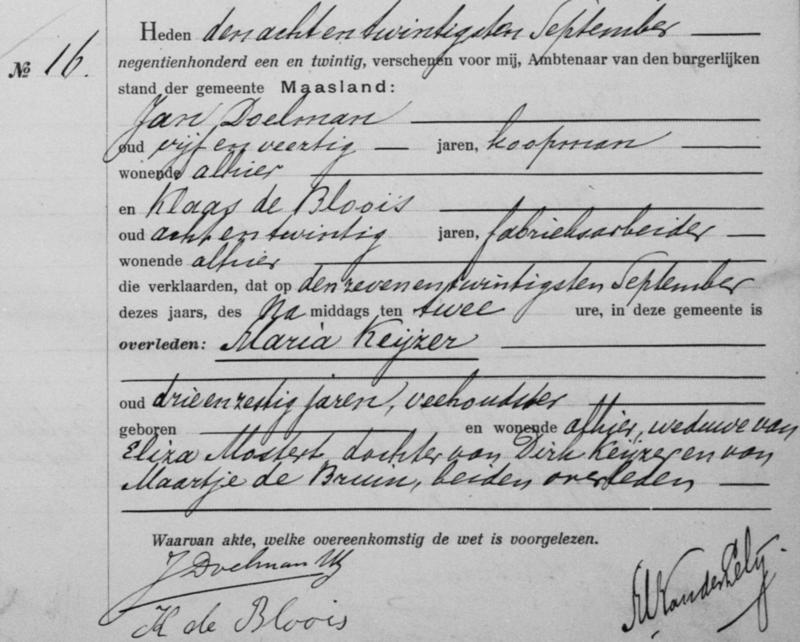 Heden den acht en twintigsten September
№ 16.
negentienhonderd een en twintig, verschenen voor mij, Ambtenaar van den burgerlijken
stand der gemeente Maasland:
Jan Doelman
oud vijf en veertig jaren, koopman
wonende alhier
en Klaas de Bloois
oud acht en twintig jaren, fabrieksarbeider
wonende alhier
die verklaarden, dat op den zeven en twintigsten September
dezes jaars, des Na middags ten twee ure, in deze gemeente is
overleden: Maria Keijzer
oud drie en zestig jaren, veehoudster
geboren en wonende alhier, weduwe van
Eliza Mostert, dochter van Dirk Keijzer en van
Maartje de Bruin, beiden overleden
Waarvan akte, welke overeenkomstig de wet is voorgelezen.
J Doelman
K de Bloois